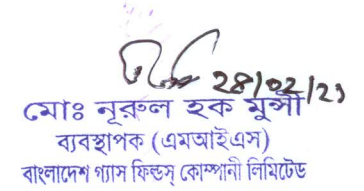 28/02/21
মোঃ নূরুল হক মুন্সী
ব্যবস্থাপক (এমআইএস)
বাংলাদেশ গ্যাস ফিল্ডস্ কোম্পানী লিমিটেড